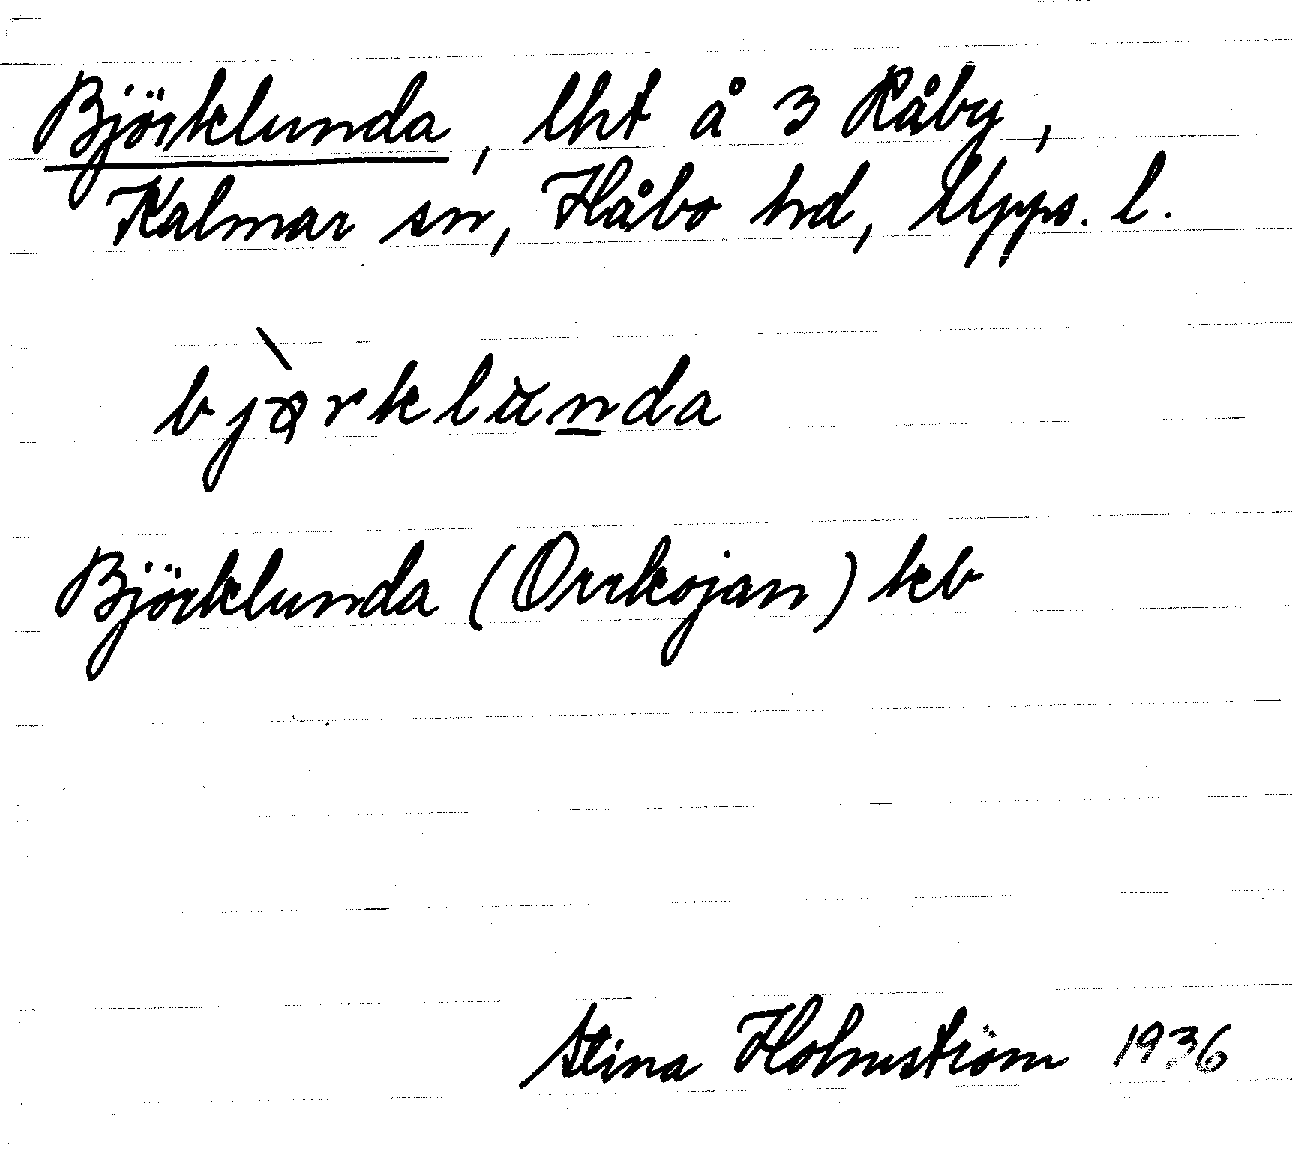 Björklunda, lht å 3 Råby,
Kalmar sn, Håbo hd, Upps. l.
bjò̢rklunda
Björklunda (Orrkojan) kb
Stina Holmström 1936